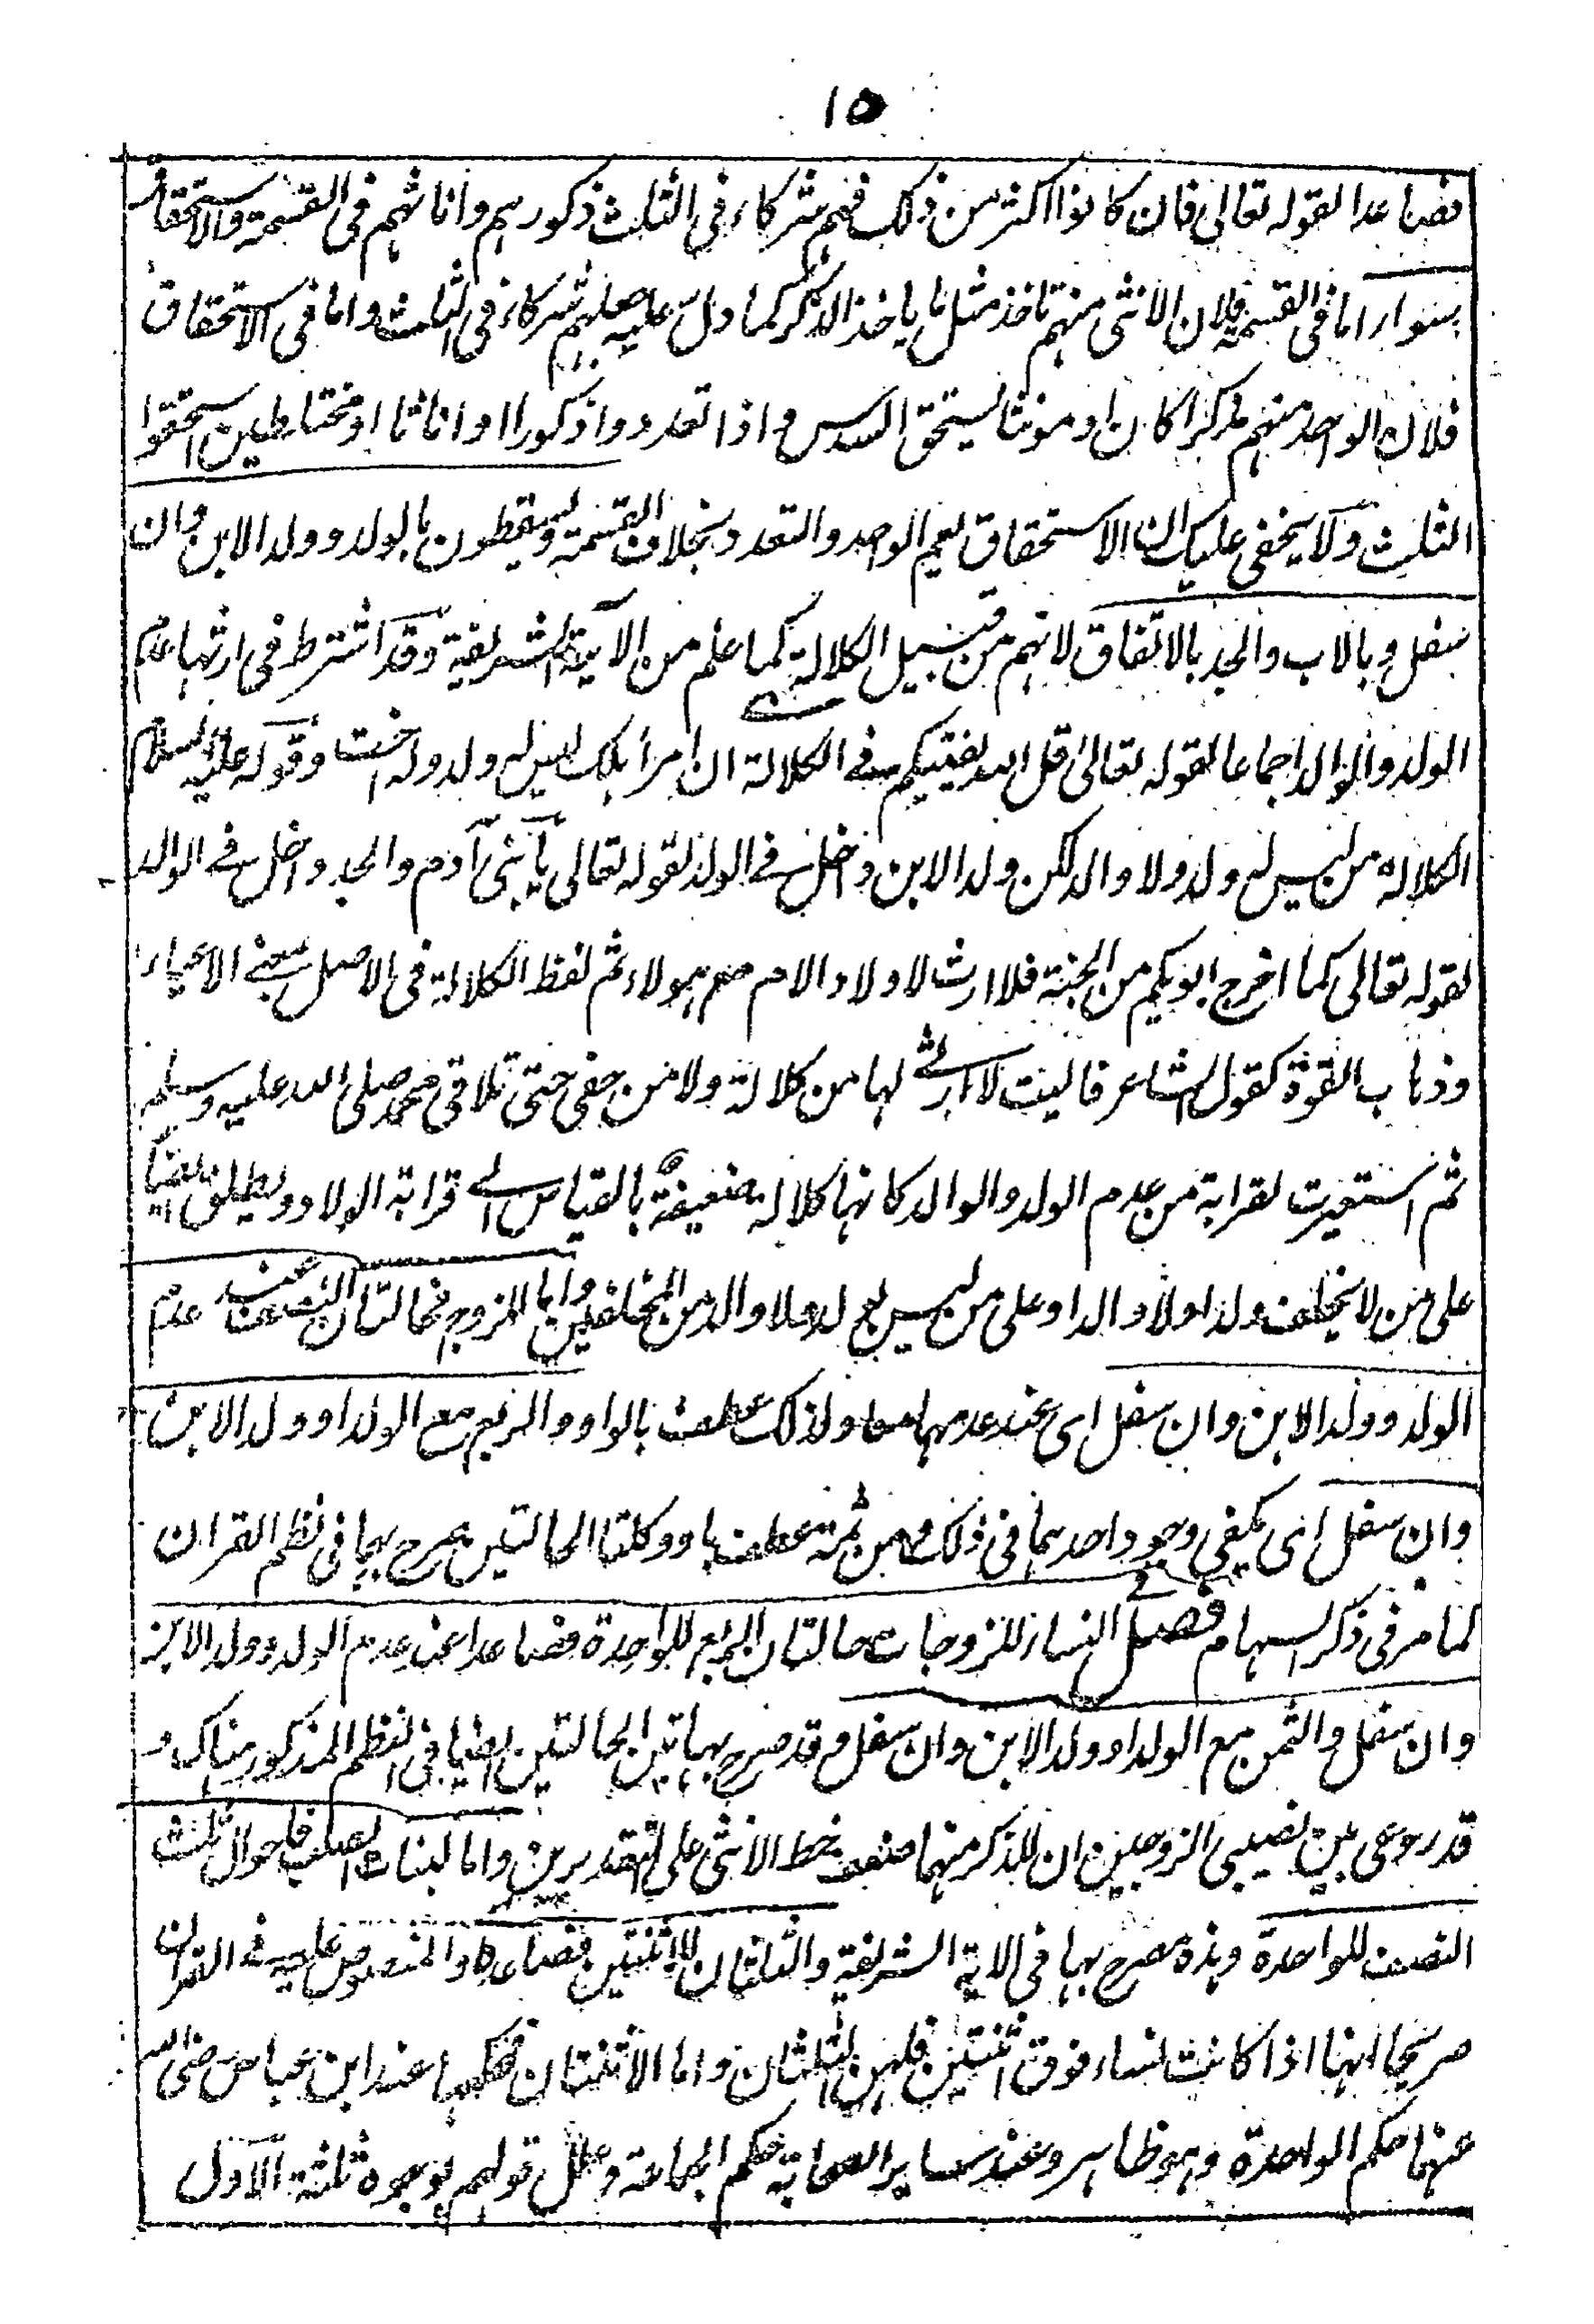 ١٥
فصاعدا لقوله تعالى فان كانوا اكثر من ذلك فهم شركاء فى الثلث ذكورهم واناثهم فى القسمة والاستحقاق
سواء اما فى القسمة فلان الانثى منهم تاخذ مثل ما ياخذ الذكر كما دل عليه جعلهم شركاء فى الثلث واما فى الاستحقاق
فلان الواحد منهم مذكرا كان او مونثا يستحق السدس واذا تعددوا ذكورا او اناثا او مختلطين استحقوا
الثلث ولا يخفى عليك ان الاستحقاق يعم الواحد والتعدد بخلاف القسمة ويسقطون بالولد وولد الابن وان
سفل وبالاب والجد بالاتفاق لانهم من قبيل الكلالة كما علم من الآية الشريفة وقد اشترط فى ارثها عدم
الولد والوالد اجماعا لقوله تعالى قل الله يفتيكم فى الكلالة ان امرأ هلك ليس له ولد وله اخت وقوله عليه السلام
الكلالة من ليس له ولد ولا والد لكن ولد الابن داخل فى الولد لقوله تعالى يا بنى آدم والجد داخل فى الوالد
لقوله تعالى كما اخرج ابويكم من الجنة فلا ارث لاولاد الام مع هولاء ثم لفظ الكلالة فى الاصل بمعنى الاعياء
وذهاب القوة كقول الشاعر فاليت لا ارثى لها من كلالة ولا من حفى حتى تلاقى محمد صلى الله عليه وسلم
ثم استعيرت لقرابة من عدم الولد والوالد كانها كلالة ضعيفة بالقياس الى قرابة الولاد ويطلق ايضا
على من لا يخلف ولدا ولا والدا وعلى من ليس بولد ولا والد من المخلفين واما للزوج فحالتان النصف عند عدم
الولد وولد الابن وان سفل اى عند عدمهما معا ولذلك عطف بالواو والربع مع الولد او ولد الابن
وان سفل اى يكفى وجود احدهما فى ذلك فمن ثمة عطف باو وكلتا الحالتين مصرح بهما فى نظم القران
كما مر فى ذكر السهام فصل فى النساء للزوجات حالتان الربع للواحدة فصاعدا عند عدم الولد وولد الابن
وان سفل والثمن مع الولد او ولد الابن وان سفل وقد صرح بهاتين الحالتين ايضا فى النظم المذكور هناك و
قد روعى بين نصيبى الزوجين ان للذكر منهما ضعف حظ الانثى على التقديرين واما لبنات الصلب فاحوال ثلث
النصف للواحدة وهذه مصرح بها فى الاية الشريفة والثلثان للاثنتين فصاعدا والمنصوص عليه فى القران
صريحا انها اذا كانت نساء فوق اثنتين فلهن الثلثان واما الاثنتان فحكمهما عند ابن عباس رضى الله
عنهما حكم الواحدة وهو ظاهر وعند ساير الصحابة حكم الجماعة وعلل قولهم بوجوه ثلثة الاول